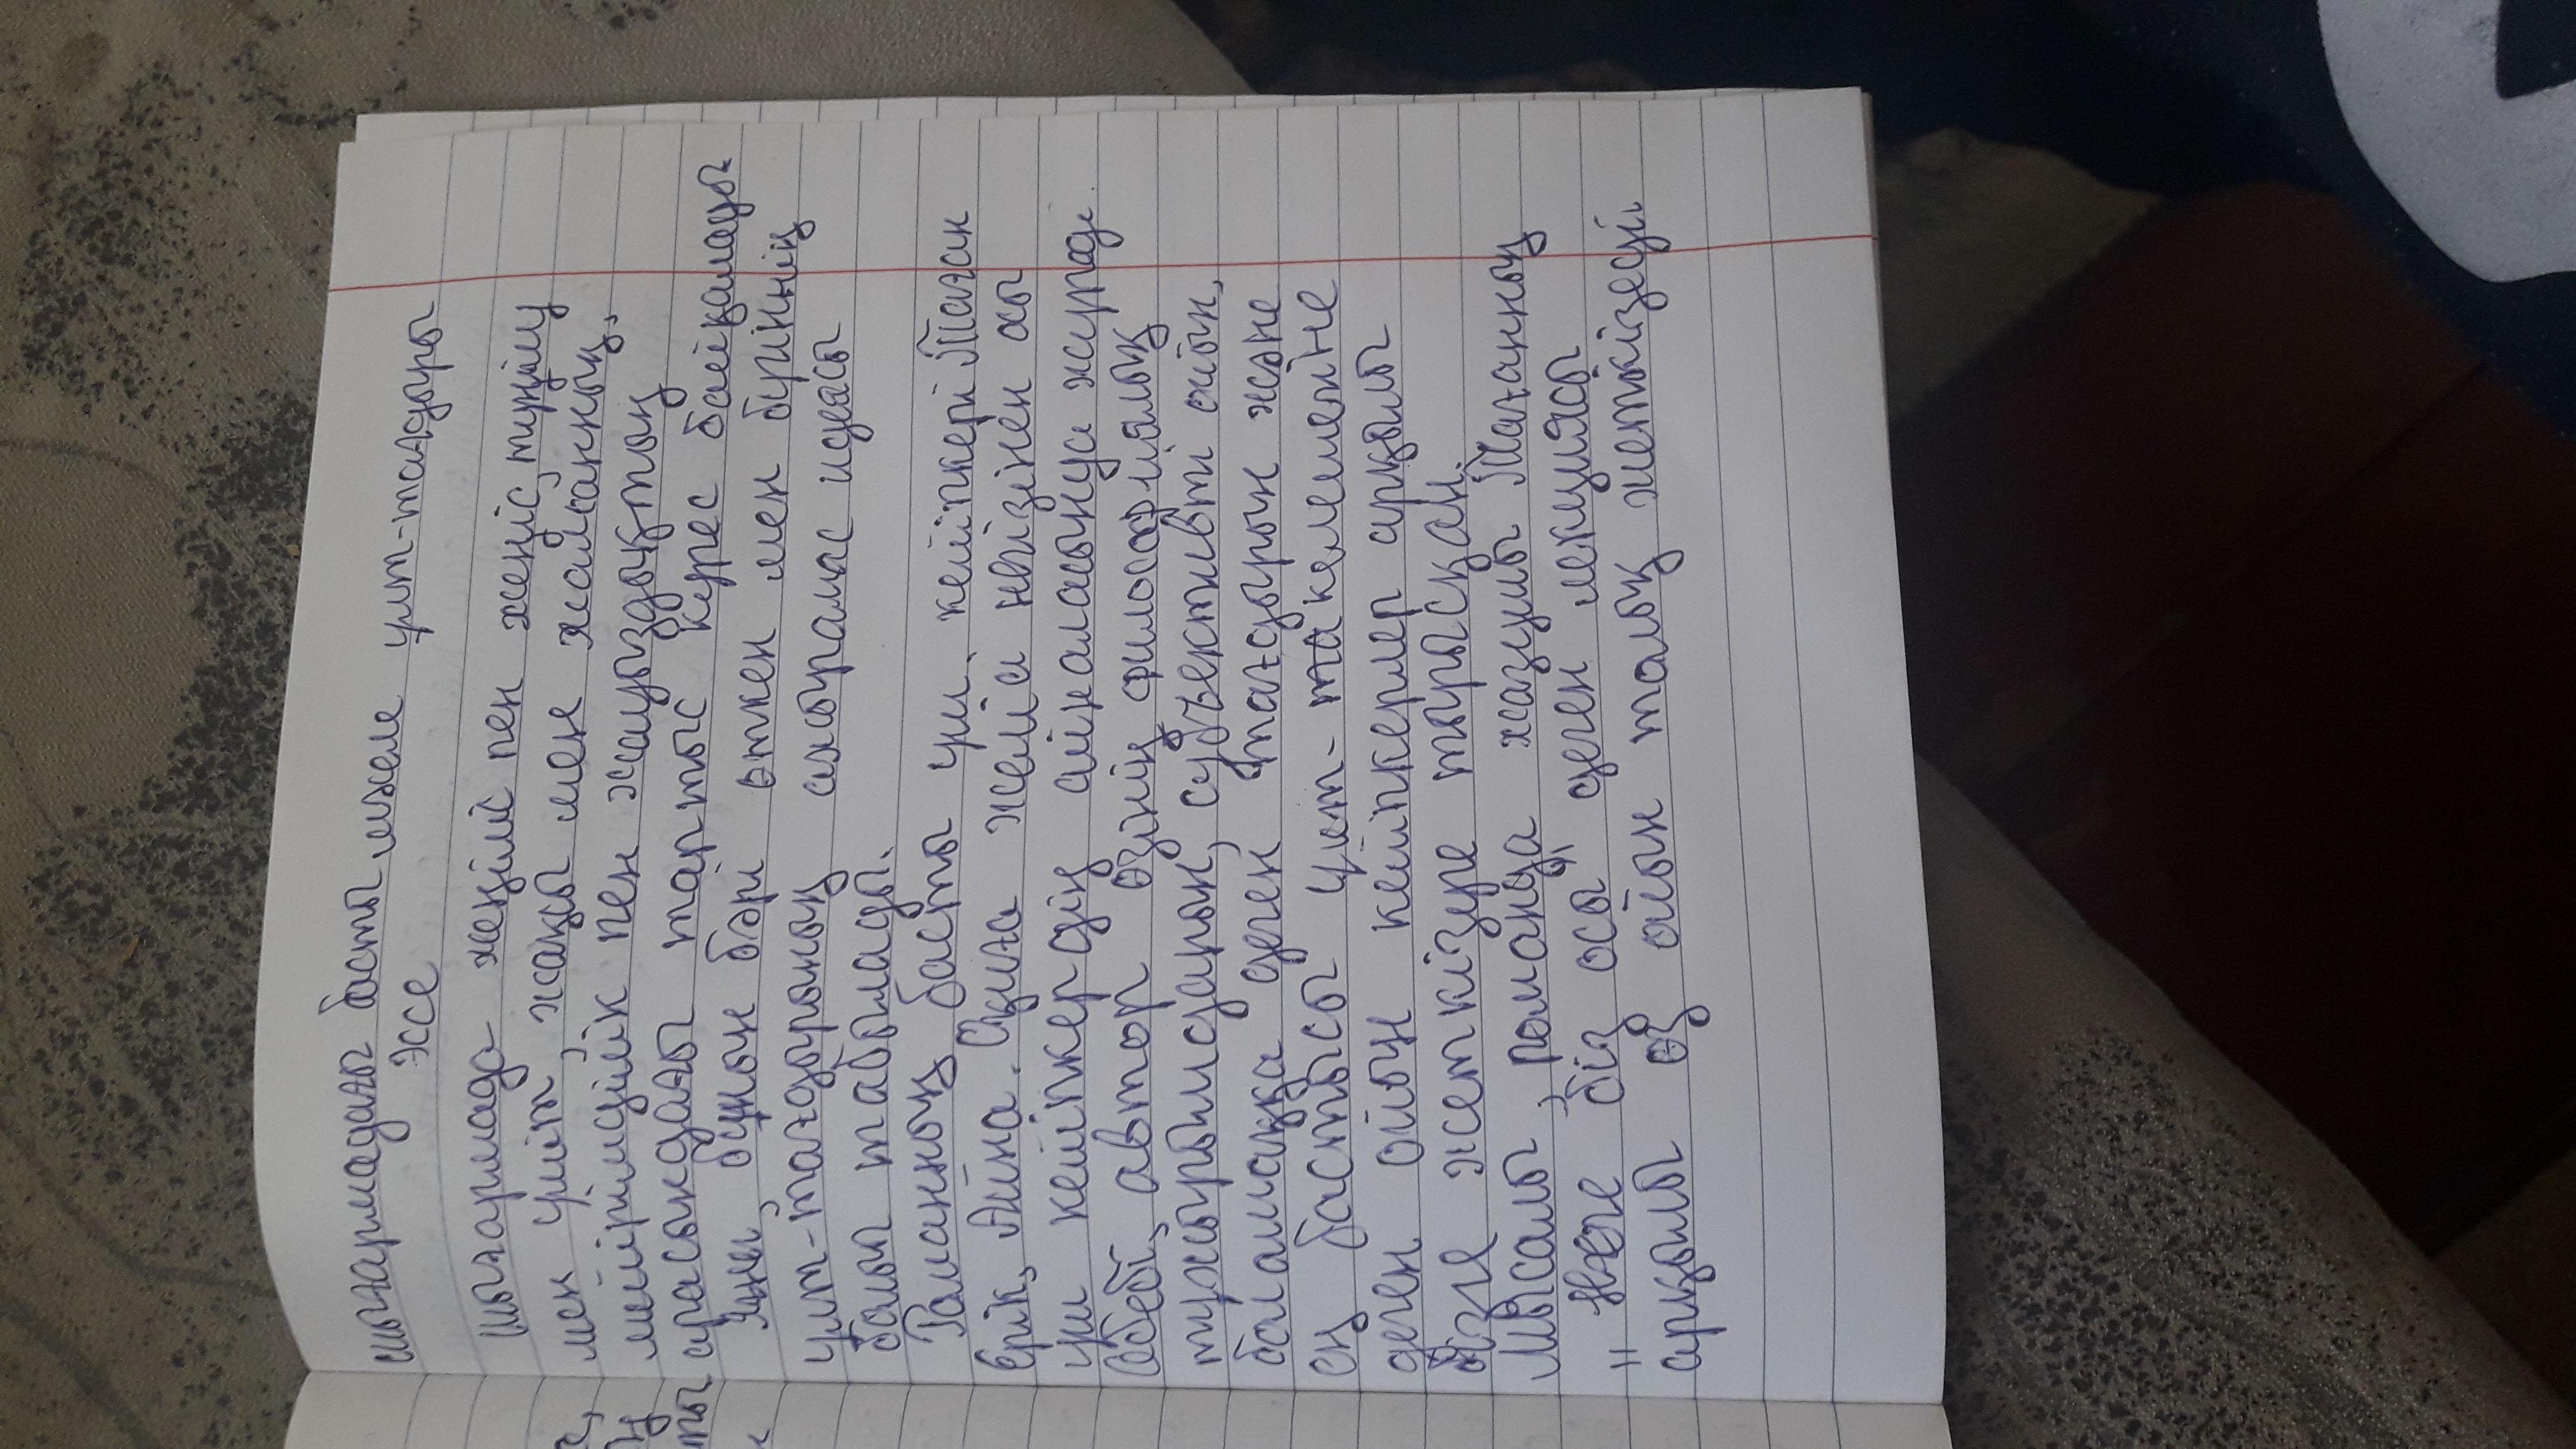 шығармадағы басты идея үміт-таңдауы
эссе
шығармада жеңіліс пен жеңіс, түңілу
мен үміт, жақсы мен жаманның,
мейірімділік пен жауыздықтың
арасындағы тартыс күрес байқалады
Яғни, бұның бәрі өткен мен бүгіннің
үміт-таңдауының ажырамас идеясы
болып табылады.
Романның басты үш кейіпкері Таған
Ерік, Айна. Оқиға желісі негізінен осы
үш кейіпкердің айналасында жүред
Себебі, автор өзінің философиялық
тұжырымдарын, субъективті ойын,
болашаққа деген таңдауын және
ең бастысы үміт- та келешегіне
деген ойын кейіпкерлер арқылы
бізге жеткізуге тырысқан.
Мысалы, романда жазушы Тағанның
" Неге біз осы" деген лекциясы
арқылы өз ойын толық жеткізеді